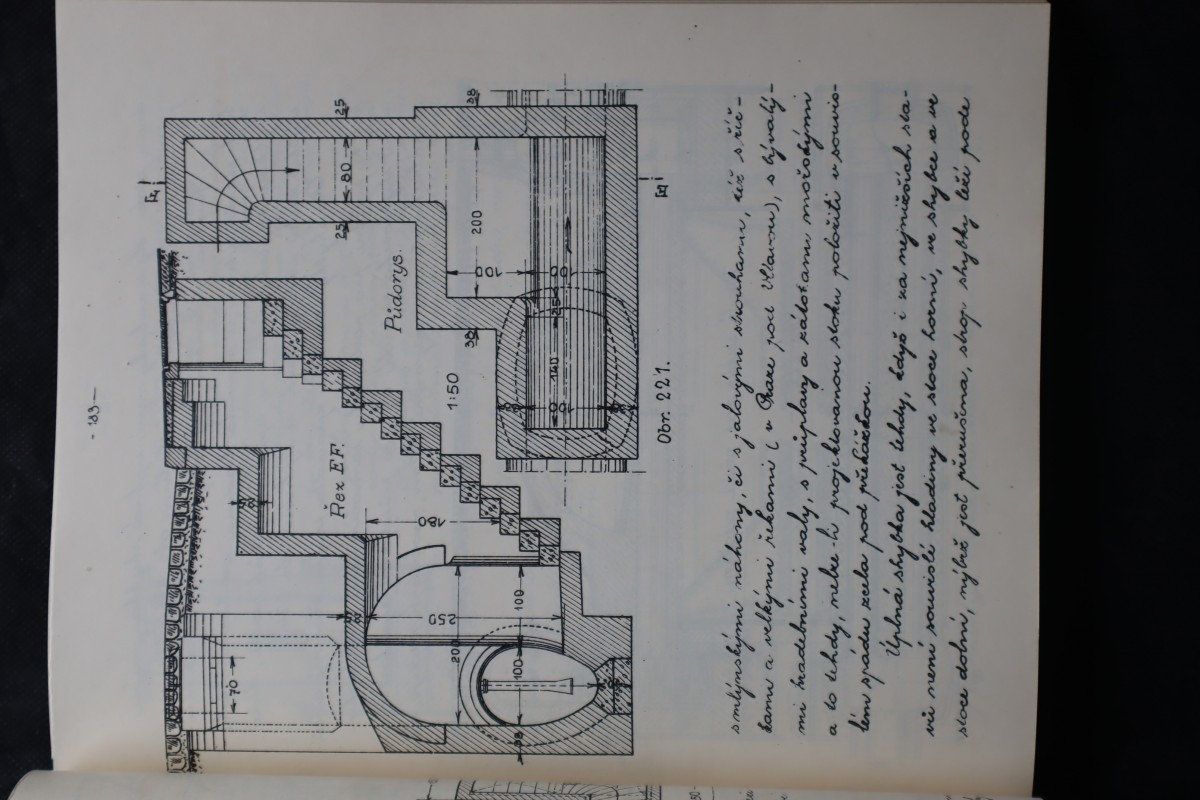 - 183 -
Řez EF.
Půdorys.
1:50
70
200
250
180
100
100
38
25
80
25
38
200
100
100
38
140
25
100
E
F
Obr. 221.
s mlýnskými náhony, či s jalovými strouhami, též s říč-
kami a velkými řekami (v Praze pod Vltavou), s bývalý-
mi hradebními valy, s průplavy a zálohami mořskými
a to tehdy, nelze-li projektovanou stoku položiti v souvis-
lém spádu zcela pod překážkou.
Úplná shybka jest tehdy, když i za nejnižších sta-
vů není souvislé hladiny ve stoce horní, ve shybce a ve
stoce dolní, nýbrž jest přerušena, strop shybky leží pode